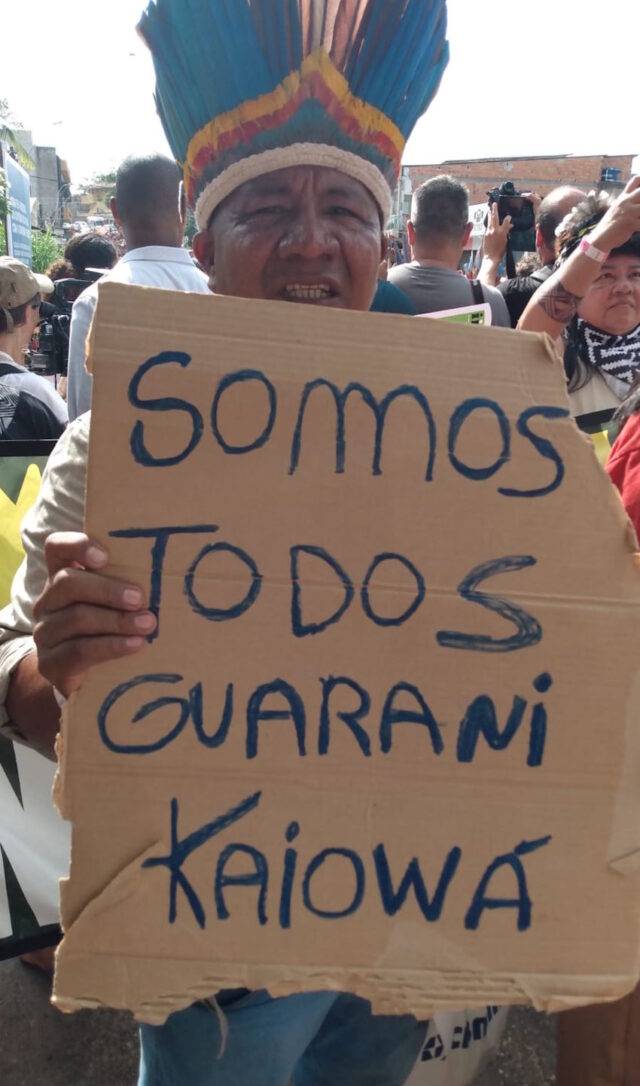 SOMOS
TODOS
GUARANi
KAiOWÁ